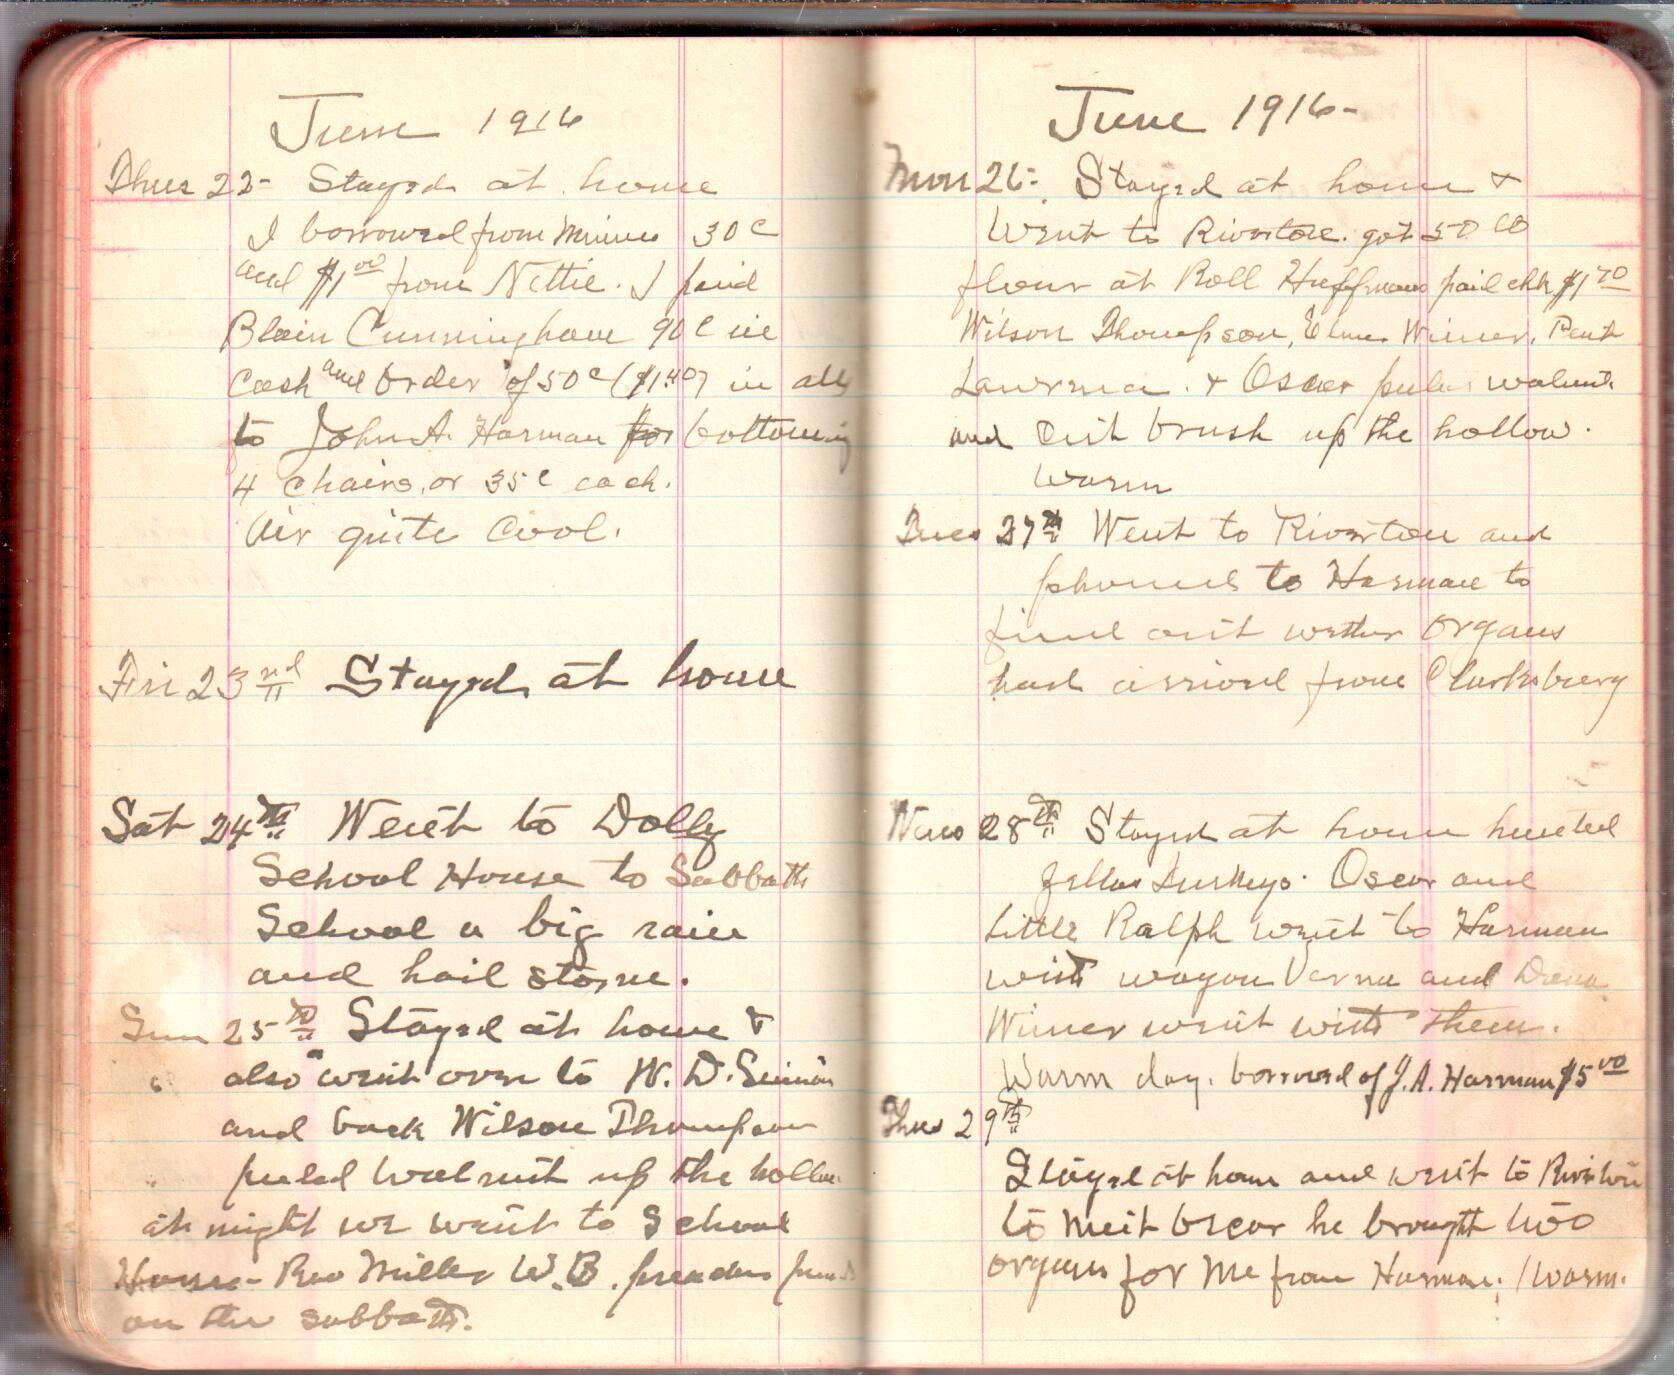 June 1916
Thur 22- Stayed at home
I borrowed from Minnie 30c
and $1.00 from Nettie. I paid
Blain Cunningham 90c in
Cash and order of 50c ($1.40) in all
to John A. Harman for bottoming
4 chairs, or 35c each.
Air quite Cool.
Fri 23rd Stayed at home
Sat 24th Went to Dolly
School House to Sabbath
School a big rain
and hail storm.
Sun 25th Stayed at home &
also went over to W. D.
and back Wilson Thompson
peeled walnut up the hollow
at night we went to School
House- Rev Miller W.B. preacher
on the sabbath.
June 1916-
Mon 26- Stayed at home &
Went to Riverton. got 50 lb
flour at Roll Huffmans paid chk $1.70
Wilson Thompson, Elmer Wimer,
Lawrence. & Oscar walnut
and Cut brush up the hollow.
Warm
Tues 27th Went to Riverton and
phoned to Harman to
find out wether organs
had arrived from Clarksburg
28th Stayed at home hunted
Turkeys. Oscar and
little Ralph went to Harman
with wagon Verna and
Wimer went with them.
Warm day. borrowed of J.A. Harman $5.00
Thur 29th
Stayed at home and went to Riverton
to meet Oscar he brought two
organs for me from Harman. Warm.